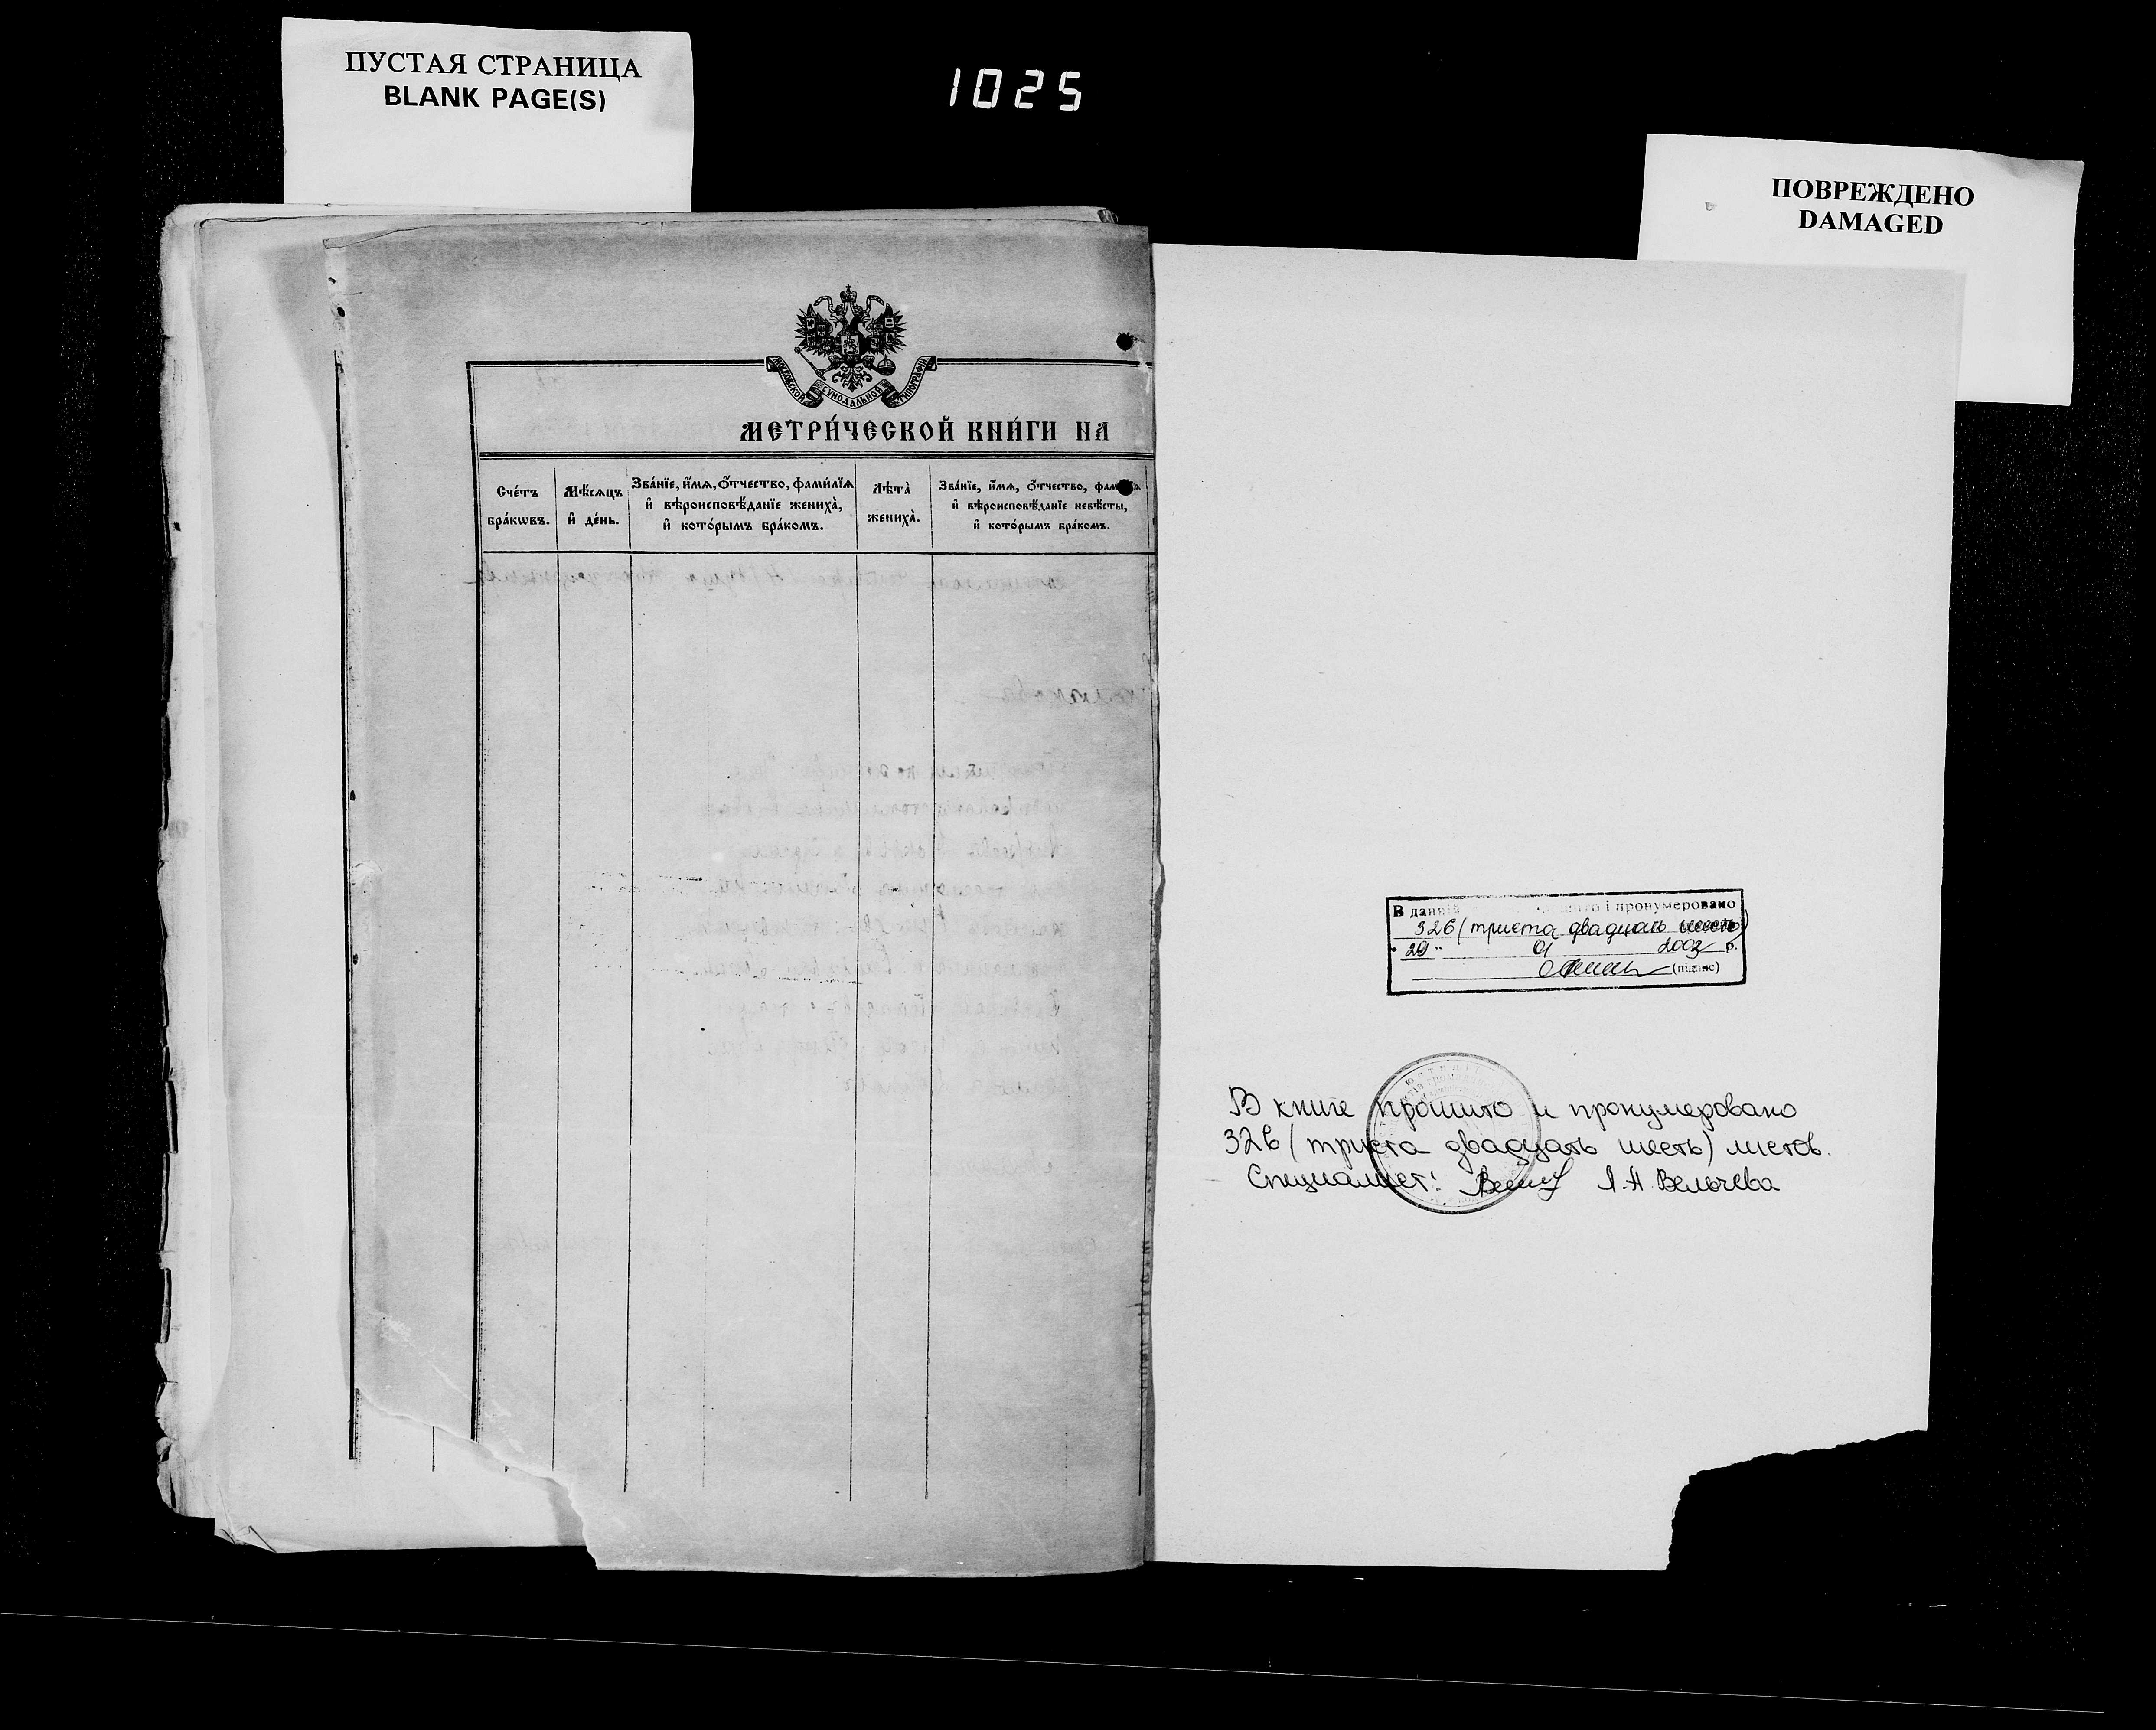 ПУСТАЯ СТРАНИЦА
BLANK PAGE(S)
1025
ПОВРЕЖДЕНО
DAMAGED
МОСКОВСКОЙ СѴНОДАЛЬНОЙ ТИПОГРАФІИ
МЕТРИ́ЧЕСКОЙ КНИ́ГИ НА
Сче́тъ
бра́кѡвъ.
Мѣ́сѧцъ
и҆ де́нь.
Зва́нїе, и҆́мѧ, ѻ҆́тчество, фами́лїѧ
и҆ вѣроисповѣ́данїе жениха̀,
и҆ кото́рымъ бра́комъ.
Лѣ́та
жениха̀.
Зва́нїе, и҆́мѧ, ѻ҆́тчество,
и҆ вѣроисповѣ́данїе невѣ́сты,
и҆ кото́рымъ бра́комъ.
В даній і пронумеровано
326 (триста двадцать шесть)
" 29 " 01 2003 р.
(підпис)
В книге прошито и пронумеровано
326 (триста двадцать шесть) листов.
Специалист: Л.А. Вельчева